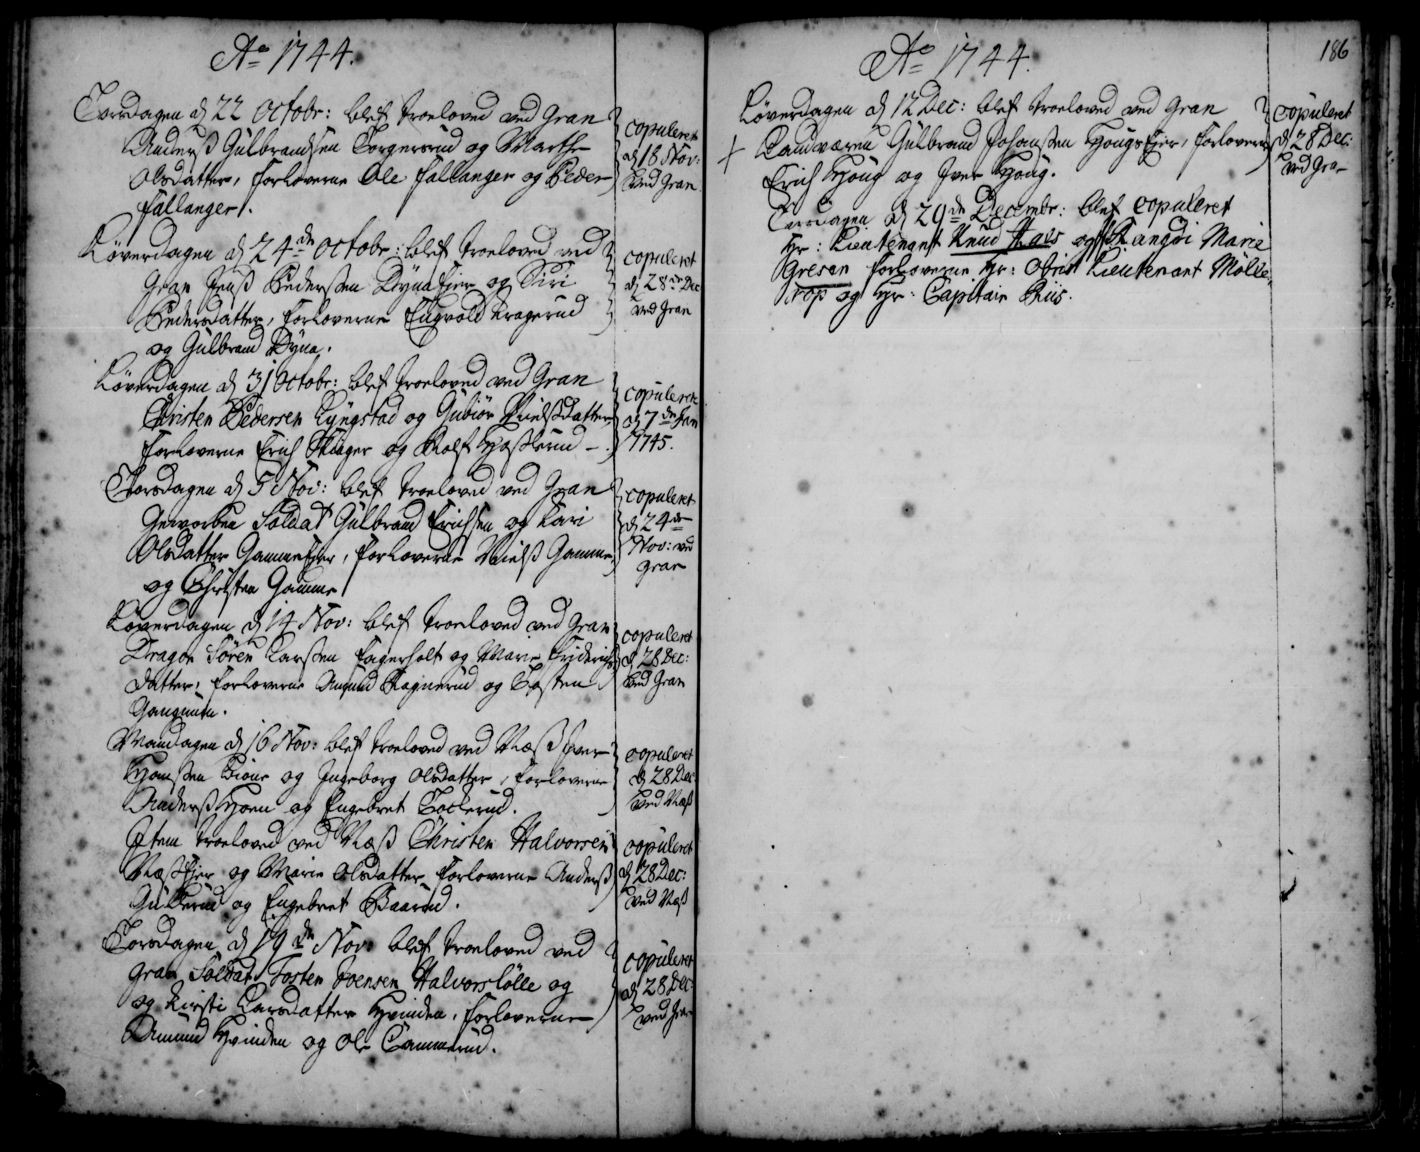 Ao 1744.
Torsdagen d 22 Octobr: blef troeloved ved Gran
Anderß Gülbrandsen Torgersrud og Marthe
Olsdatter, forloverne Ole Fallanger og Peder
Fallanger.
copuleret
d 18 Nov:
ved Gran
Løverdagen d 24de Octobr: blef troeloved ved
Gran Jenß Pedersen Dynæ Eier og Siri
Pedersdatter, forloverne Engvold Kragerud
og Gülbrand Dyna.
copuleret
d 28de Dec
ved Gran
Løverdagen d 31 Octobr: blef troeloved ved Gran
Christen Pedersen Lyngstad og Gubiør Nielsdatter
forloverne Erich Skiager og Rolf Haslerud -
copuleret
d 7de Jan
1745.
Torsdagen d 5 Nov: blef troeloved ved Gran
Geworben Soldat Gülbrand Erichsen og Kari
Olsdatter Gamme Eier, forloverne Nielß Gamme
og Christen Gamme
copuleret
d 24de
Nov: ved
Gran
Løverdagen d 14 Nov: blef troeloved ved Gran
Dragon Søren Larsen Fagerholt og Marie Friderichs
datter, forloverne Amund Ragnerud og Tosten
copuleret
d 28 Dec:
ved Gran
Mandagen d 16 Nov: blef troeloved ved Næß Iver
Hansen og Ingeborg Olsdatter, forloverne
Anderß Hoen og Engebret Tollerud.
copuleret
d 28 Dec
ved Næß
Item troeloved ved Næß Christen Halvorsen
Næß Eier og Marie Olsdatter forloverne Anderß
Gulderud og Engebret Baarud.
copuleret
d 28 Dec:
ved Næß
Torsdagen d 19de Nov: blef troeloved ved
Gran Soldat Tosten Svensen Halvorslølle og
og Kirsti Larsdatter Hvinden, forloverne
Amund Hvinden og Ole Dammerud.
copuleret
d 28 Dec:
ved Gran
Ao 1744.
186
Løverdagen d 12 Dec: blef troeloved ved Gran
+ Landværn Gülbrand Johansen Hougs Eier, forloverne
Erich Houg og Iver Houg.
copuleret
d 28 Dec:
ved Gran
Torsdagen d 29de Decembr: blef copuleret
Hr: Lieutenant Knud og Marie
Gresen forloverne Hr: Obrist Lieutenant Molde
rop og Hr: Capitain Riis.